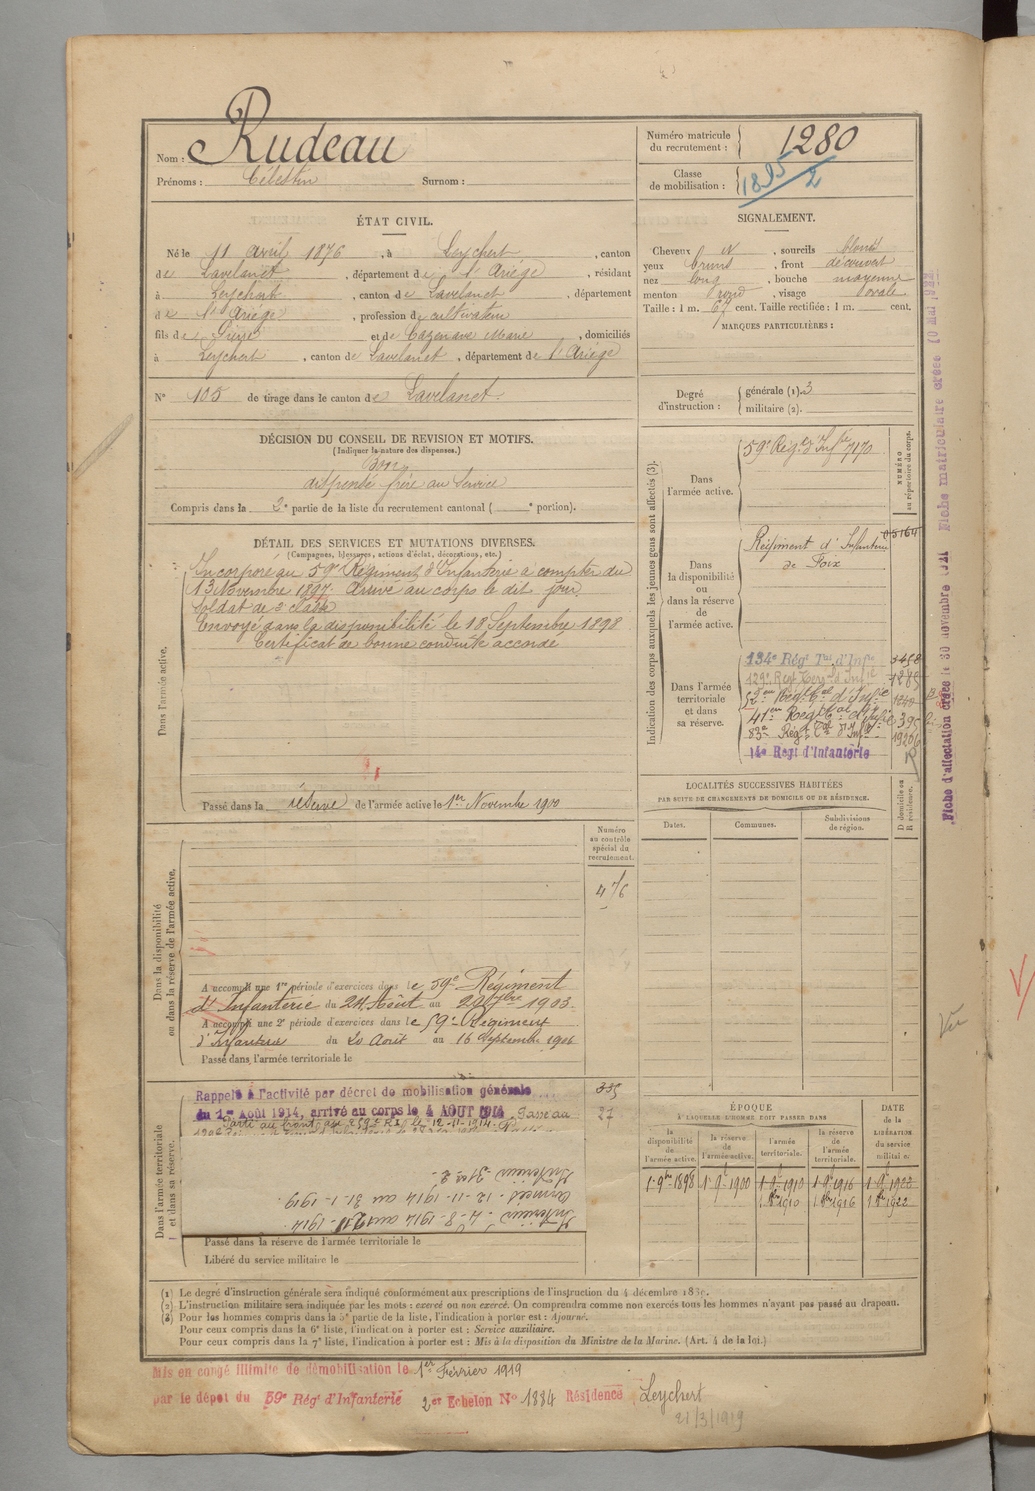 Nom : Rudeau
Prénoms : Célestin Surnom :
Numéro matricule du recrutement : 1280
Classe de mobilisation : 1895/2
ÉTAT CIVIL.
Né le 11 avril 1876, à Leychert, canton
de Lavelanet, département de l'Ariège, résidant
à Leychert, canton de Lavelanet, département
de l'Ariège, profession de cultivateur
fils de Pierre et de Cazenave Marie, domiciliés
à Leychert, canton de Lavelanet, département de l'Ariège
N° 105 de tirage dans le canton de Lavelanet.
SIGNALEMENT.
Cheveux N, sourcils blond
yeux bruns, front découvert
nez long, bouche moyenne
menton rond, visage ovale
Taille : 1 m. 67 cent. Taille rectifiée : 1 m. cent.
MARQUES PARTICULIÈRES :
Degré d'instruction : générale (1). 3
militaire (2).
DÉCISION DU CONSEIL DE REVISION ET MOTIFS.
(Indiquer la nature des dispenses.)
Bon
dispensé frère au service
Compris dans la 2e partie de la liste du recrutement cantonal ( e portion).
DÉTAIL DES SERVICES ET MUTATIONS DIVERSES.
(Campagnes, blessures, actions d'éclat, décorations, etc.)
Dans l'armée active.
Incorporé au 59e Régiment d'Infanterie à compter du
13 Novembre 1897. Arrivé au corps le dit jour.
Soldat de 2e classe
Envoyé dans la disponibilité le 18 Septembre 1898
Certificat de bonne conduite accordé
Passé dans la réserve de l'armée active le 1er Novembre 1900
Indication des corps auxquels les jeunes gens sont affectés (3).
NUMÉRO au répertoire du corps.
Dans l'armée active.
59e Régt d'Infie 7170
Dans la disponibilité ou dans la réserve de l'armée active.
Régiment d'Infanterie 05164
de Foix
Dans l'armée territoriale et dans sa réserve.
134e Régt Tal d'Infie 3458
129e Régt Terral d'Infie 1285
52em Régt Cal d'Infie 1240
41em Régt Cal d'Infie 395
83e Régt Cal d'Infie 19206
14e Regt d'Infanterie
Fiche d'affectation créée le 30 novembre 1921 Fiche matriculaire créée
LOCALITÉS SUCCESSIVES HABITÉES
PAR SUITE DE CHANGEMENTS DE DOMICILE OU DE RÉSIDENCE.
Dates. Communes. Subdivisions de région. D domicile ou R résidence.
Numéro au contrôle spécial du recrutement.
476
Dans la disponibilité ou dans la réserve de l'armée active.
A accompli une 1re période d'exercices dans le 59e Régiment
d'Infanterie du 24 Août au 20 7bre 1903.
A accompli une 2e période d'exercices dans le 59e Régiment
d'Infanterie du 20 Août au 16 Septembre 1906
Passé dans l'armée territoriale le
Dans l'armée territoriale et dans sa réserve.
Rappelé à l'activité par décret de mobilisation générale
du 1er Août 1914, arrivé au corps le 4 AOUT 1914. Passé au
Parti au front au 259e RI le 12-11-1914.
335
27
Intérieur 4-8-1914 au 11-1914.
Armées 12-11-1914 au 31-1-1919
Intérieur
Passé dans la réserve de l'armée territoriale le
Libéré du service militaire le
ÉPOQUE
A LAQUELLE L'HOMME DOIT PASSER DANS
la disponibilité de l'armée active. la réserve de l'armée active. l'armée territoriale. la réserve de l'armée territoriale.
DATE de la LIBÉRATION du service militaire.
1 9bre 1898 1 9bre 1900 1 8bre 1910 1 8bre 1916 1 8bre 1922
1 8bre 1910 1 8bre 1916 1 8bre 1922
(1) Le degré d'instruction générale sera indiqué conformément aux prescriptions de l'instruction du 4 décembre 1889.
(2) L'instruction militaire sera indiquée par les mots : exercé ou non exercé. On comprendra comme non exercés tous les hommes n'ayant pas passé au drapeau.
(3) Pour les hommes compris dans la 5e partie de la liste, l'indication à porter est : Ajourné.
Pour ceux compris dans la 6e liste, l'indication à porter est : Service auxiliaire.
Pour ceux compris dans la 7e liste, l'indication à porter est : Mis à la disposition du Ministre de la Marine. (Art. 4 de la loi.)
Mis en congé illimité de démobilisation le 1er Février 1919
par le dépôt du 59e Régt d'Infanterie 2er Echelon N° 1884 Résidence Leychert
21/3/1919